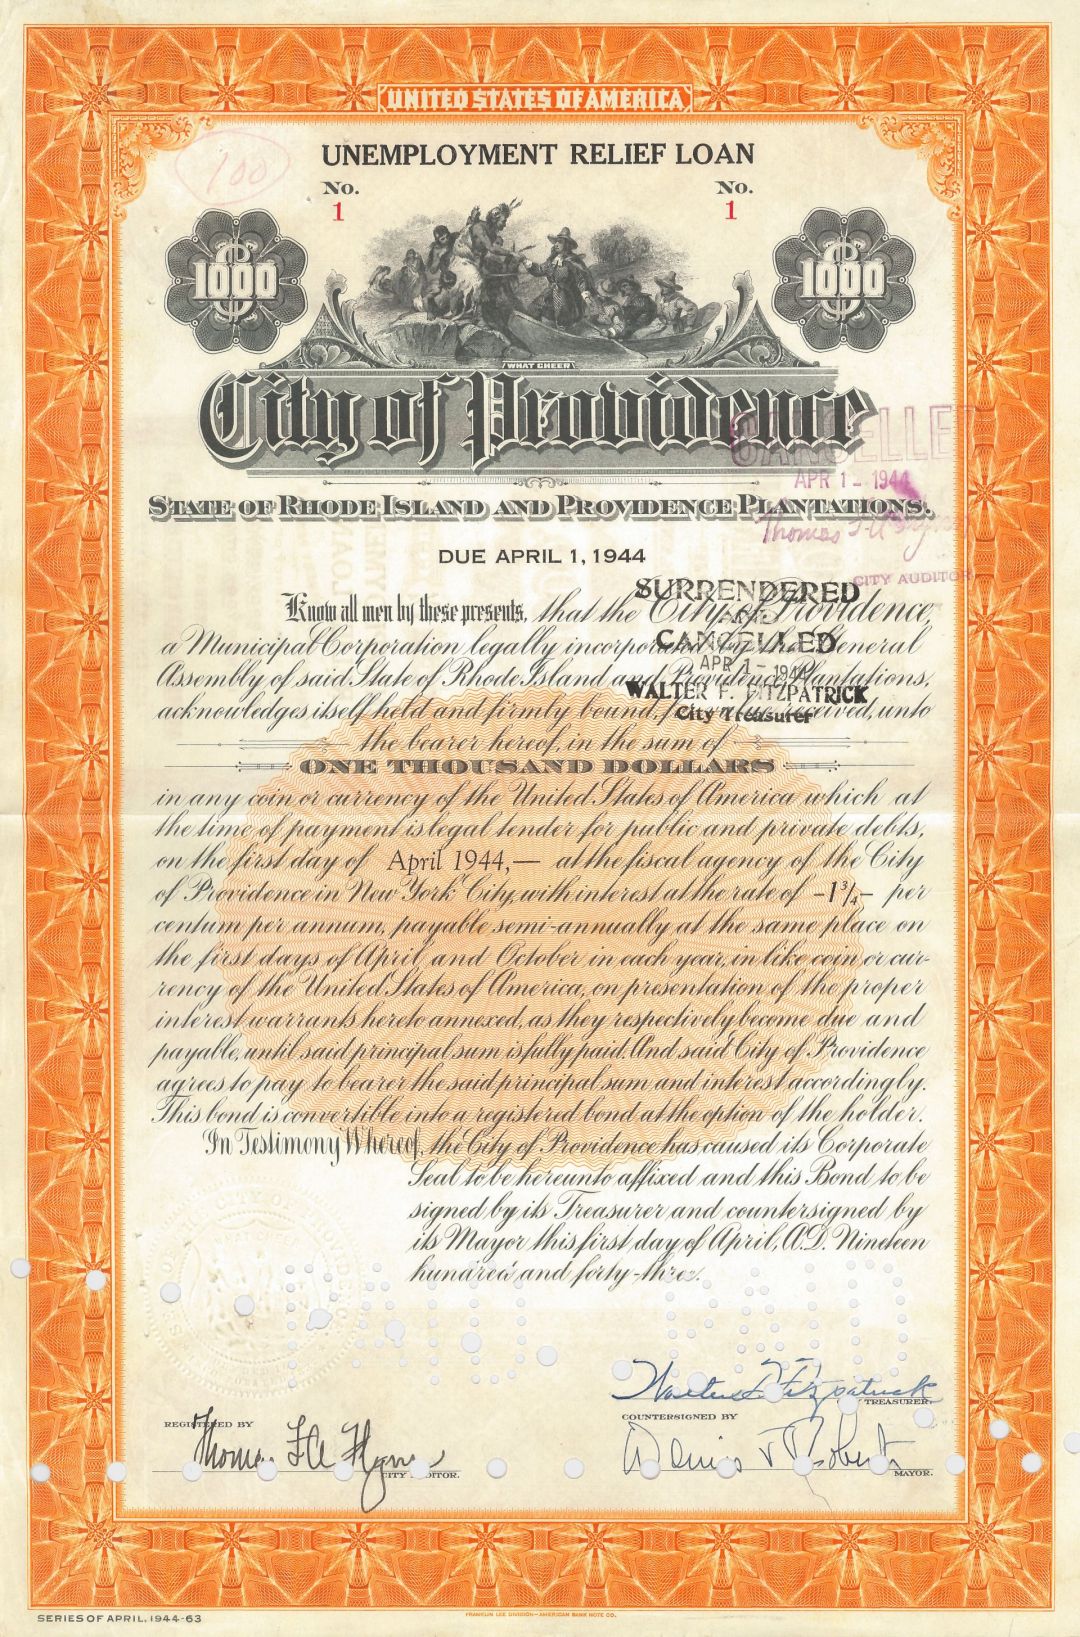 UNITED STATES OF AMERICA
100
UNEMPLOYMENT RELIEF LOAN
No. No.
1 1
$1000 $1000
WHAT CHEER
City of Providence
CANCELLED
APR 1 - 1944
STATE OF RHODE ISLAND AND PROVIDENCE PLANTATIONS.
Thomas
DUE APRIL 1, 1944
CITY AUDITOR
SURRENDERED
Know all men by these presents, that the City of Providence,
AND
CANCELLED
a Municipal Corporation legally incorporated by the General
APR 1 - 1944
Assembly of said State of Rhode Island and Providence Plantations,
WALTER F. FITZPATRICK
City Treasurer
acknowledges itself held and firmly bound, for value received, unto
the bearer hereof, in the sum of
ONE THOUSAND DOLLARS
in any coin or currency of the United States of America which at
the time of payment is legal tender for public and private debts,
on the first day of April 1944,— at the fiscal agency of the City
of Providence in New York City, with interest at the rate of -1¾- per
centum per annum, payable semi-annually at the same place on
the first days of April and October in each year, in like coin or cur-
rency of the United States of America, on presentation of the proper
interest warrants hereto annexed, as they respectively become due and
payable, until said principal sum is fully paid. And said City of Providence
agrees to pay to bearer the said principal sum and interest accordingly.
This bond is convertible into a registered bond at the option of the holder.
In Testimony Whereof, the City of Providence has caused its Corporate
Seal to be hereunto affixed and this Bond to be
signed by its Treasurer and countersigned by
its Mayor this first day of April, A.D. Nineteen
hundred and forty-three.
Walter F. Fitzpatrick
TREASURER.
REGISTERED BY COUNTERSIGNED BY
Thomas Dennis J Roberts
CITY AUDITOR. MAYOR.
SERIES OF APRIL, 1944-63
FRANKLIN LEE DIVISION—AMERICAN BANK NOTE CO.